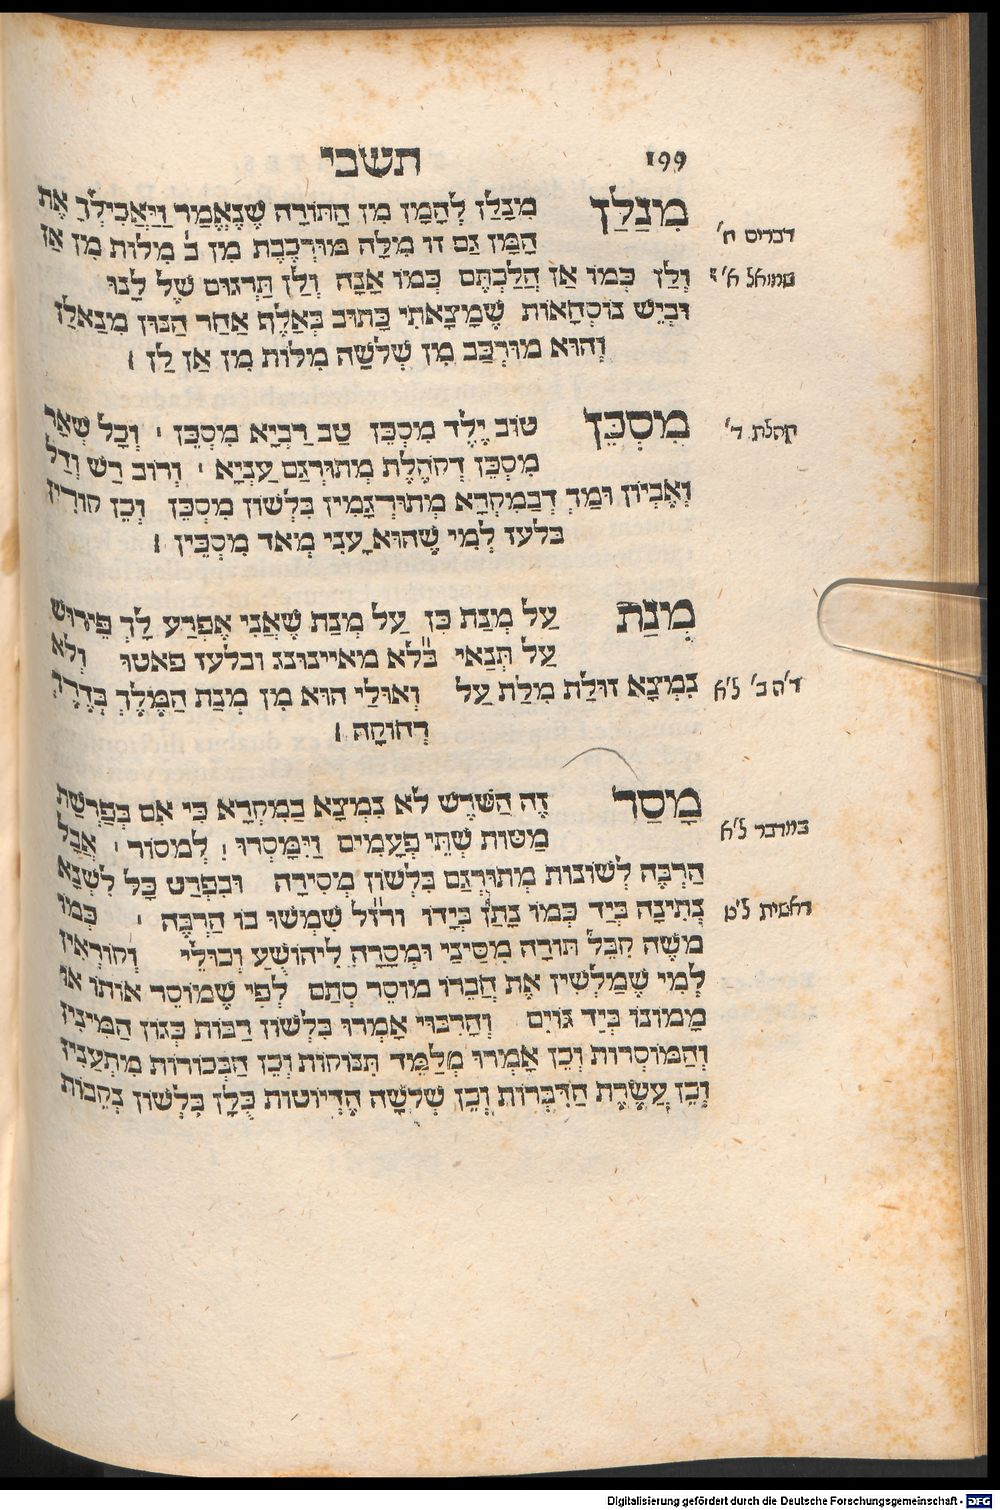 תשבי 199
מִנַלַן מִנַלַן לְהָמָן מִן הַתּוֹרָה שֶׁנֶאֱמַר וַיַּאֲכִילְךָ אֶת
דברים ח׳
הַמָּן גַם זוּ מִלָּה מוּרְכֶּבֶת מִן ב׳ מִלּוֹת מִן אַן
שמואל א׳ י׳
וְלַן כְּמוֹ אַן הֲלַכְתֶּם כְּמוֹ אָנָה וְלַן תַּרְגּוּם שֶׁל לָנוּ
וּבְיֵשׁ נוּסְחָאוֹת שֶׁמָצָאתִי כָּתוּב בְּאָלֶף אַחַר הַנּוּן מִנַאלַן
וְהוּא מוּרְכָּב מִן שְׁלֹשָׁה מִלּוֹת מִן אַן לַן ׃
מִסְכֵּן טוֹב יֶלֶד מִסְכֵּן טַב רַבְיָא מִסְכֵּן ׳ וְכָל שְׁאַר
קהלת ד׳
מִסְכֵּן דְקֹהֶלֶת מְתוּרְגַּם עַנְיָא ׳ וְרוֹב רַשׁ וְדַל
וְאֶבְיוֹן וּמַךְ דְּבַמִקְרָא מְתוּרְגָמִין בִּלְשׁוֹן מִסְכֵּן וְכֵן קוֹרִין
בלעז לְמִי שֶׁהוּא עָנִי מְאֹד מִסְכִּין ׃
מְנַת עַל מְנַת כֵּן עַל מְנַת שֶׁאֲנִי אֶפְרַע לָךְ פֵּירוּשׁ
עַל תְּנַאי בל״א מאיינונג ובלעז פאטו וְלֹא
נִמְצָא זוּלַת מִלַּת עַל וְאוּלַי הוּא מִן מְנָת הַמֶּלֶךְ בְּדֶרֶךְ
ד״ה ב׳ ל״א
רְחוֹקָה ׃
מָסַר זֶה הַשֹּׁרֶשׁ לֹא נִמְצָא בַמִקְרָא כִּי אִם בְּפָרָשַׁת
במדבר ל״א
מַטּוֹת שְׁתֵּי פְעָמִים וַיִּמָּסְרוּ ׃ לִמְסוֹר ׳ אֲבָל
הַרְבֶּה לְשׁוֹנוֹת מְתוּרְגָּם בִּלְשׁוֹן מְסִירָה וּבִפְרַט כָּל לִשְׁנָא
נְתִינָה בְּיַד כְּמוֹ נָתַן בְּיָדוֹ ורז״ל שִׁמְשׁוּ בוֹ הַרְבֶּה ׳ כְּמוֹ
בראשית ל״ט
מֹשֶׁה קִבֵּל תּוֹרָה מִסִּינַי וּמְסָרָהּ לִיהוֹשֻׁעַ וְכוּלֵּי וְקוֹרְאִין
לְמִי שֶׁמַּלְשִׁין אֶת חֲבֵרוֹ מוֹסֵר סְתָם לְפִי שֶׁמּוֹסֵר אוֹתוֹ אוֹ
מָמוֹנוֹ בְּיַד גּוֹיִם וְהָרִבּוּי אָמְרוּ בִּלְשׁוֹן רַבּוֹת כְּגוֹן הַמִּינִין
וְהַמּוֹסְרוֹת וְכֵן אָמְרוּ מְלַמֵּד תִּנוֹקוֹת וְכֵן הַבְּכוֹרוֹת מִתְעַנִּין
וְכֵן עֲשֶׂרֶת הַדִּבְּרוֹת וְכֵן שְׁלֹשָׁה הֶדְיוֹטוֹת כֻּלָּן בִּלְשׁוֹן נְקֵבוֹת
Digitalisierung gefördert durch die Deutsche Forschungsgemeinschaft - DFG